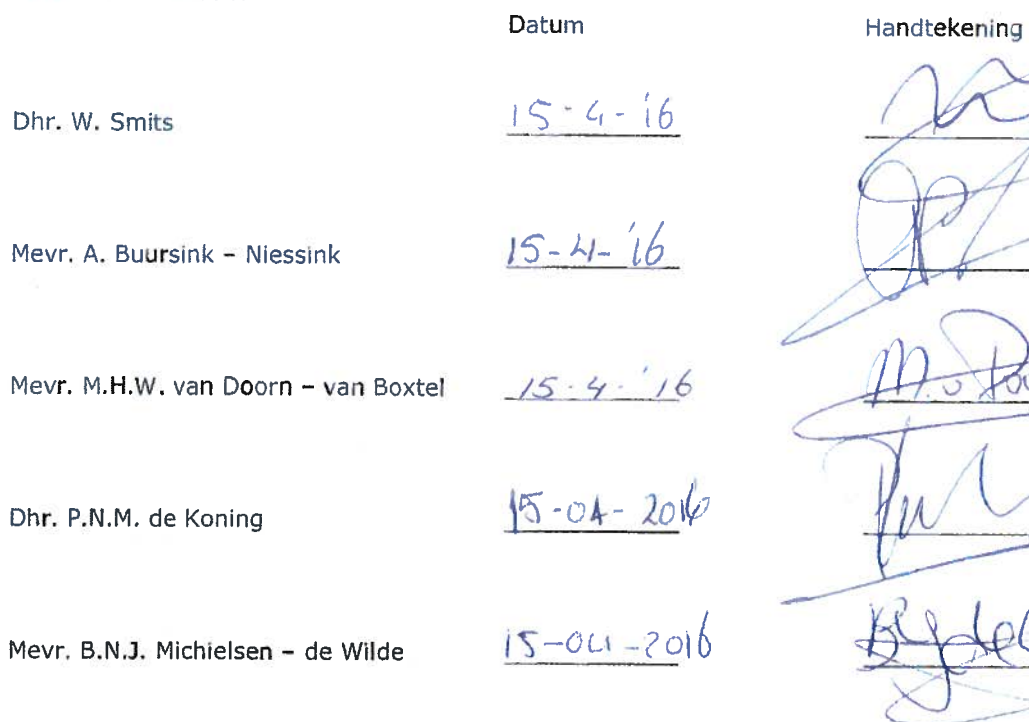 Datum Handtekening
Dhr. W. Smits 15-4-'16
Mevr. A. Buursink – Niessink 15-4-'16
Mevr. M.H.W. van Doorn – van Boxtel 15-4-'16 M. v
Dhr. P.N.M. de Koning 15-04-2016
Mevr. B.N.J. Michielsen – de Wilde 15-04-2016